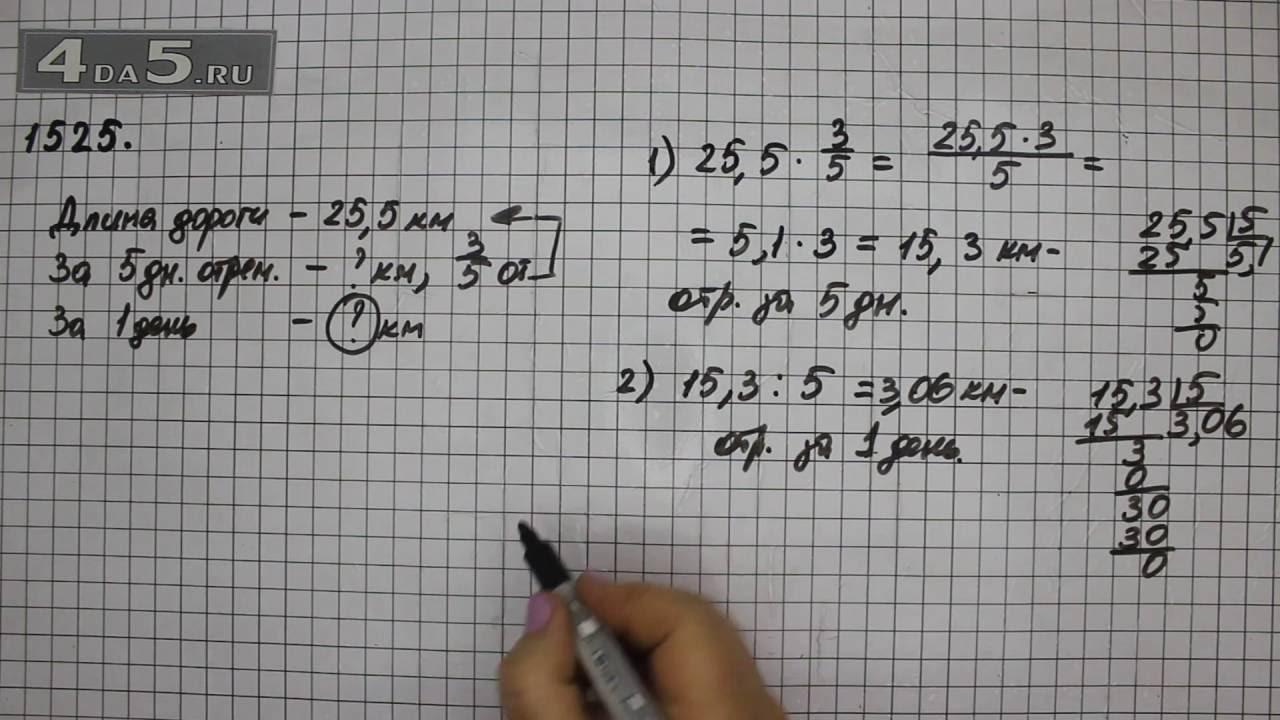 4DA5.RU
1525.
Длина дороги - 25,5 км
За 5 дн. отрем. - ? км, 3/5 от
За 1 день - ? км
1) 25,5 · 3/5 = 25,5 · 3 / 5 =
= 5,1 · 3 = 15,3 км -
отр. за 5 дн.
25,5 5
25 5,1
5
5
0
2) 15,3 : 5 = 3,06 км -
отр. за 1 день.
15,3 5
15 3,06
3
0
30
30
0